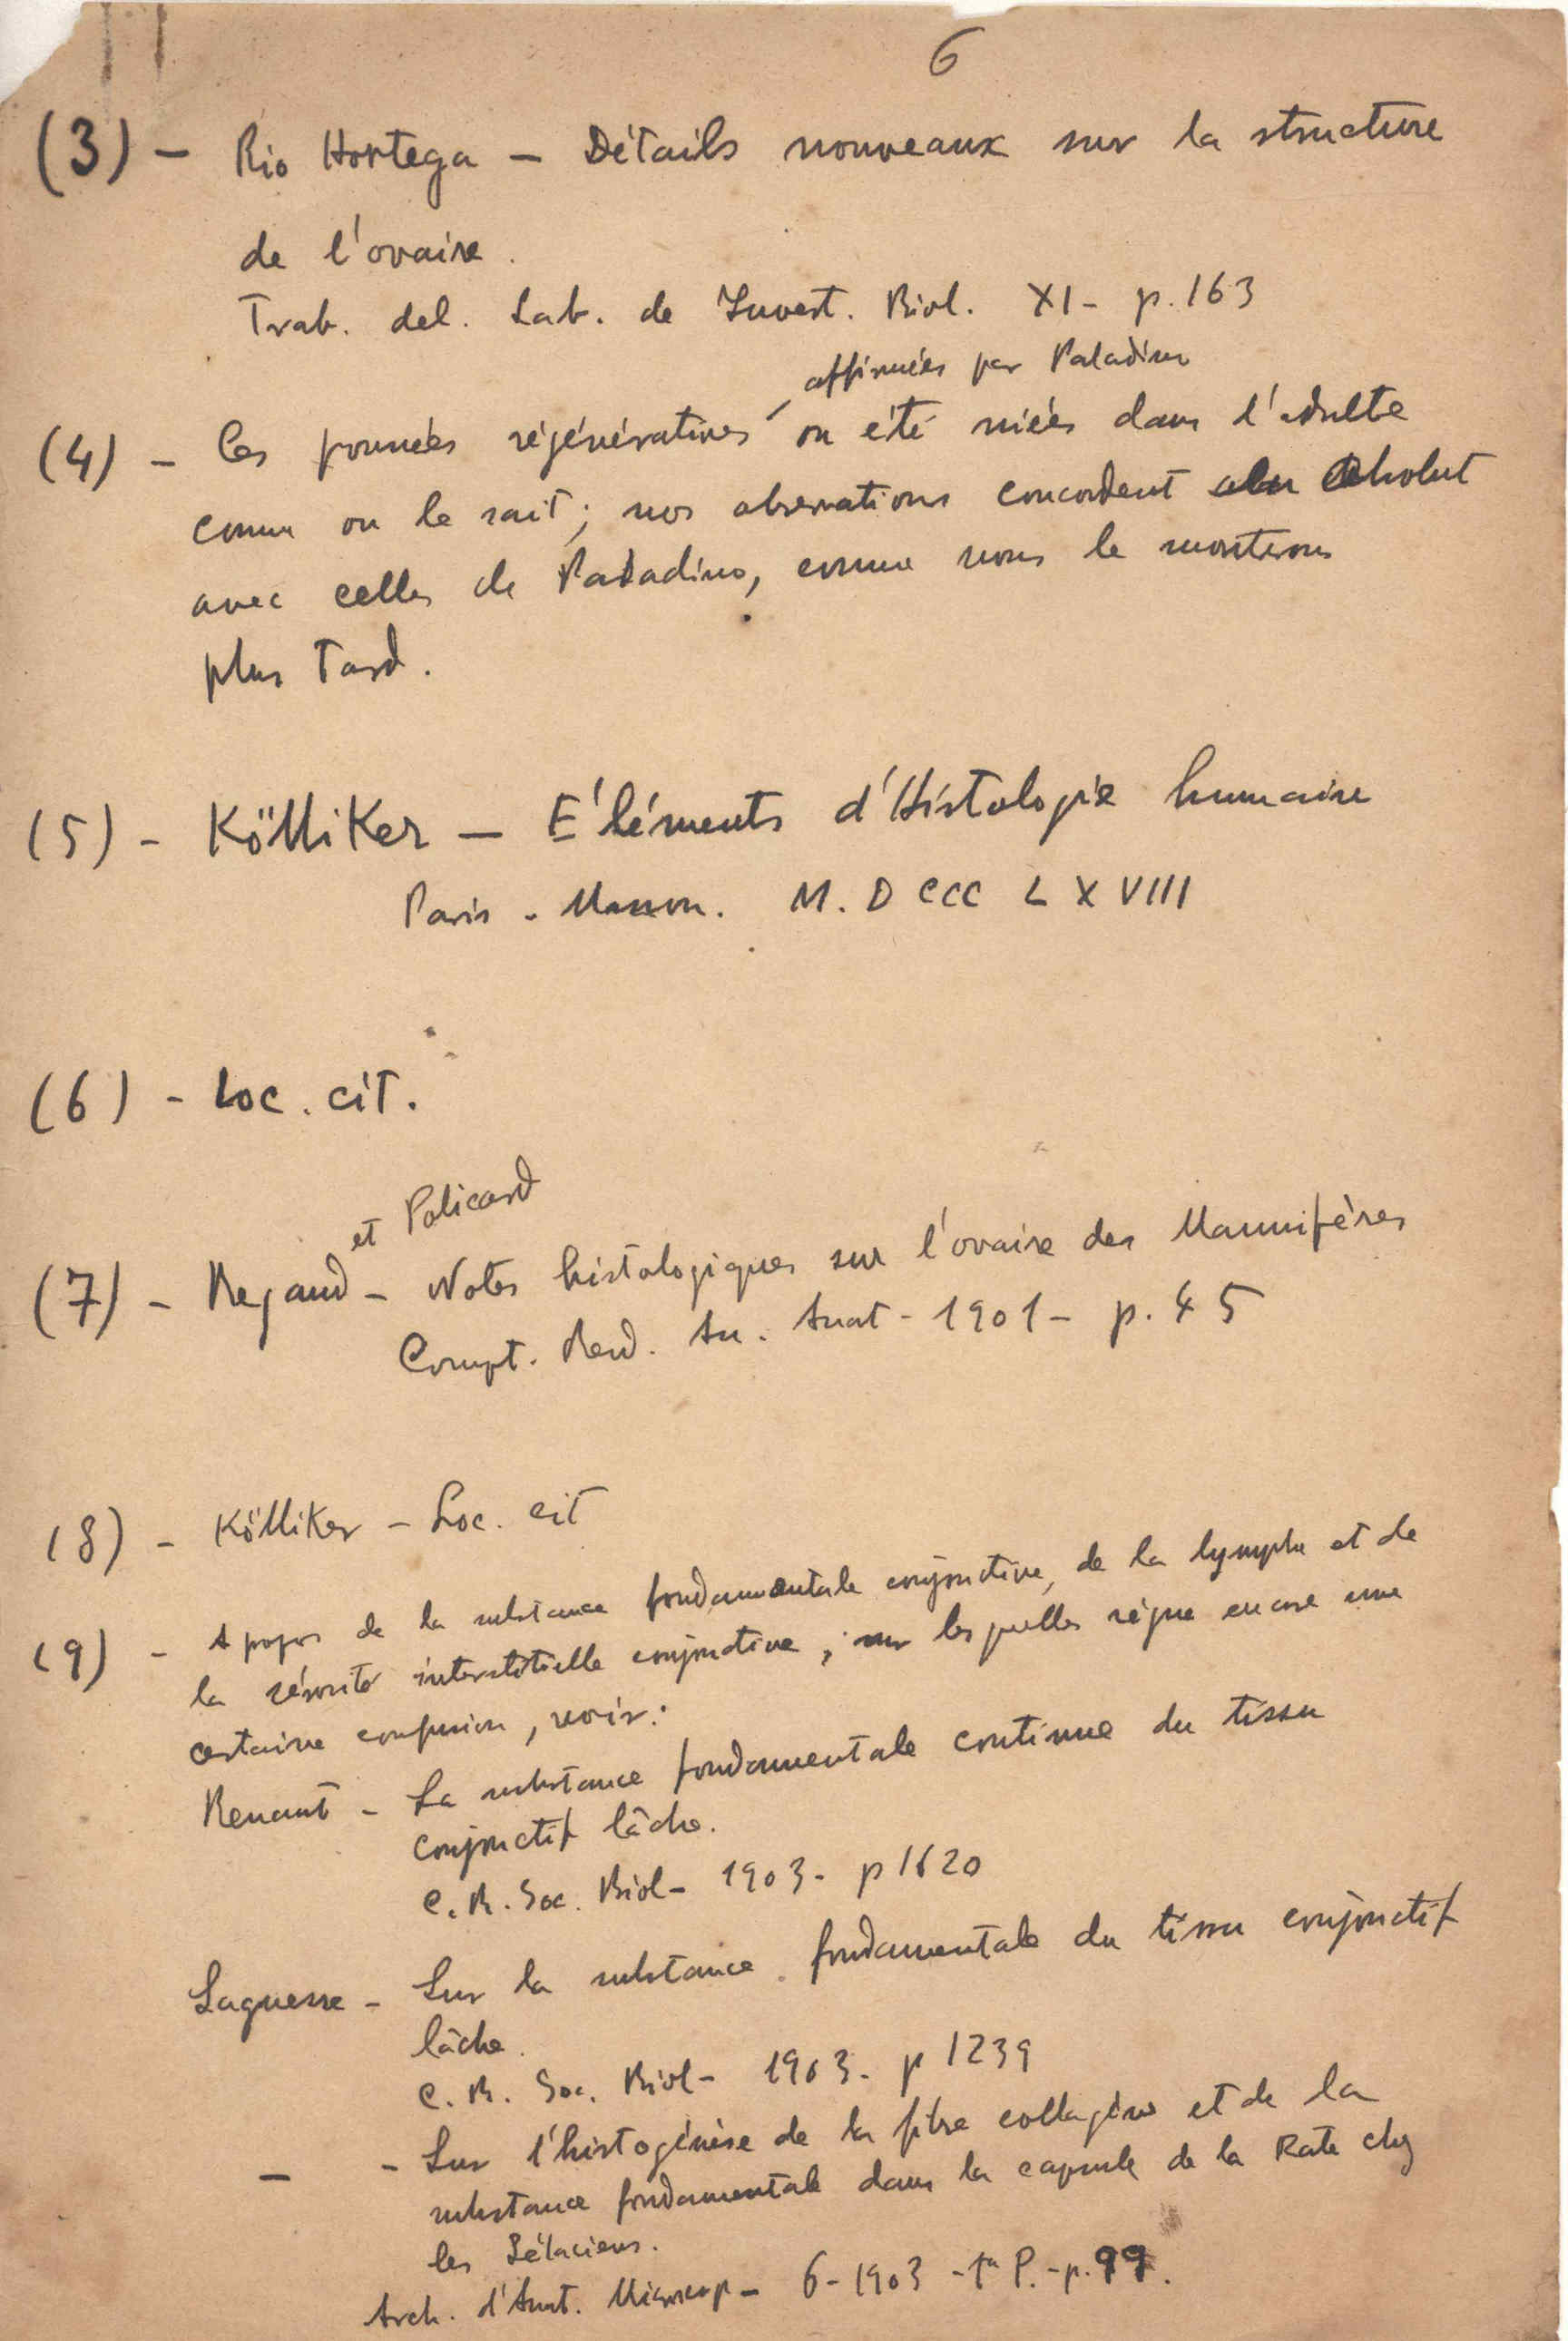 6
(3) - Rio Hortega - Détails nouveaux sur la structure
de l'ovaire.
Trab. del. Lab. de Invest. Biol. XI - p. 163
affirmées par Paladino
(4) - Ces poussées régénératives on été niées dans l'adulte
comme on le sait; nos observations concordent absolut
avec celles de Paladino, comme nous le montrerons
plus tard.
(5) - Kölliker - Eléments d'Histologie humaine
Paris - Masson. M. D CCC L X VIII
(6) - Loc. cit.
et Policard
(7) - Regaud - Notes histologiques sur l'ovaire des Mammifères
Compt. Rend. An. Anat - 1901 - p. 45
(8) - Kölliker - Loc. cit
(9) - A propos de la substance fondamentale conjonctive, de la lymphe et de
la sérosité interstitielle conjonctive, sur lesquelles règne encore une
certaine confusion, voir:
Renaut - La substance fondamentale continue du tissu
conjonctif lâche.
C. R. Soc. Biol - 1903 - p 1620
Laguesse - Sur la substance fondamentale du tissu conjonctif
lâche.
C. R. Soc. Biol - 1903 - p 1239
- - Sur l'histogénèse de la fibre collagène et de la
substance fondamentale dans la capsule de la Rate chez
les Sélaciens.
Arch. d'Anat. Microscop - 6 - 1903 - 1a P. - p. 99.